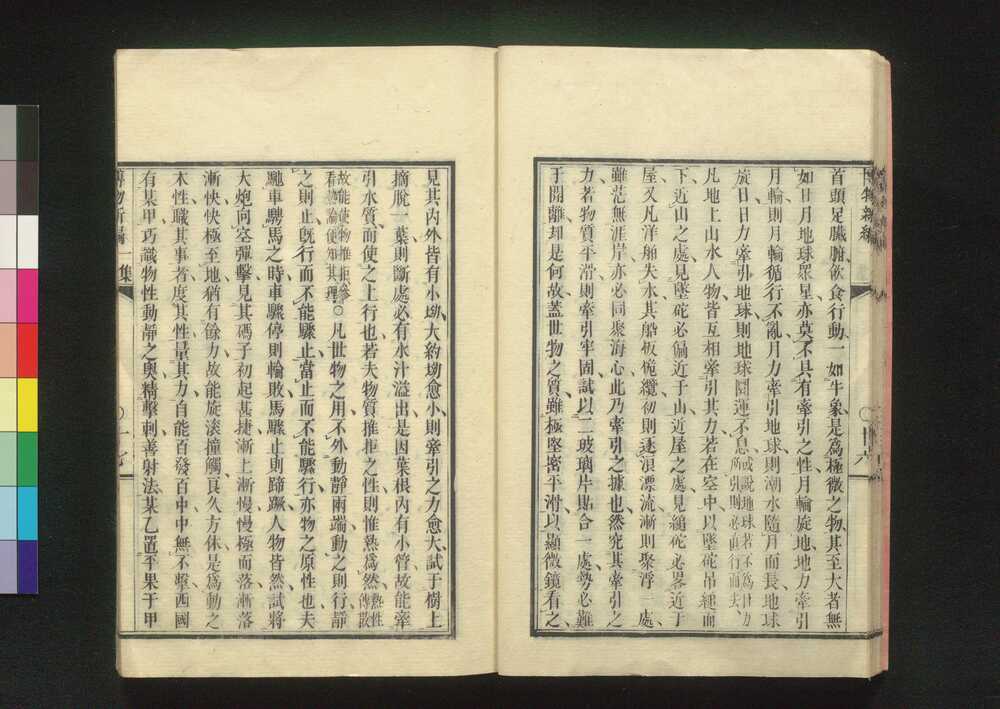 首頭足臟腑飲食行動一如牛象是爲極微之物其至大者無
如日月地球眾星亦莫不具有牽引之性月輪旋地地力牽引
月輪則月輪循行不亂月力牽引地球則潮水隨月而長地球
旋日日力牽引地球則地球圜運不息或説地球若不爲日力所引則必直行而去
凡地上山水人物皆互相牽引其力若在空中以墜砣吊繩而
下近山之處見墜砣必偏近于山近屋之處見繩砣必畧近于
屋又凡洋舶失水其船板桅纜初則逐浪漂流漸則聚浮一處
雖茫無涯岸亦必同聚海心此乃牽引之據也然究其牽引之
力若物質平滑則牽引牢固試以二玻璃片貼合一處勢必難
于開離却是何故蓋世物之質雖極堅密平滑以顯微鏡看之
見其內外皆有小坳大約坳愈小則牽引之力愈大試于樹上
摘脫一葉則斷處必有水汁溢出是因葉根內有小管故能牽
引水質而使之上行也若夫物質推拒之性則惟熱爲然熱性傳散
故能使物推拒參看熱論便知其理○凡世物之用不外動靜兩端動之則行靜
之則止旣行而不能驟止當止而不能驟行亦物之原性也夫
馳車騁馬之時車驟停則輪敗馬驟止則蹄蹶人物皆然試將
大炮向空彈擊見其碼子初起甚捷漸上漸慢慢極而落漸落
漸快快極至地猶有餘力故能旋滾撞觸良久方休是爲動之
本性職其事者度其性量其力自能百發百中中無不擊西國
有某甲巧識物性動靜之奧精擊刺善射法某乙置平果于甲
博物新編 一集